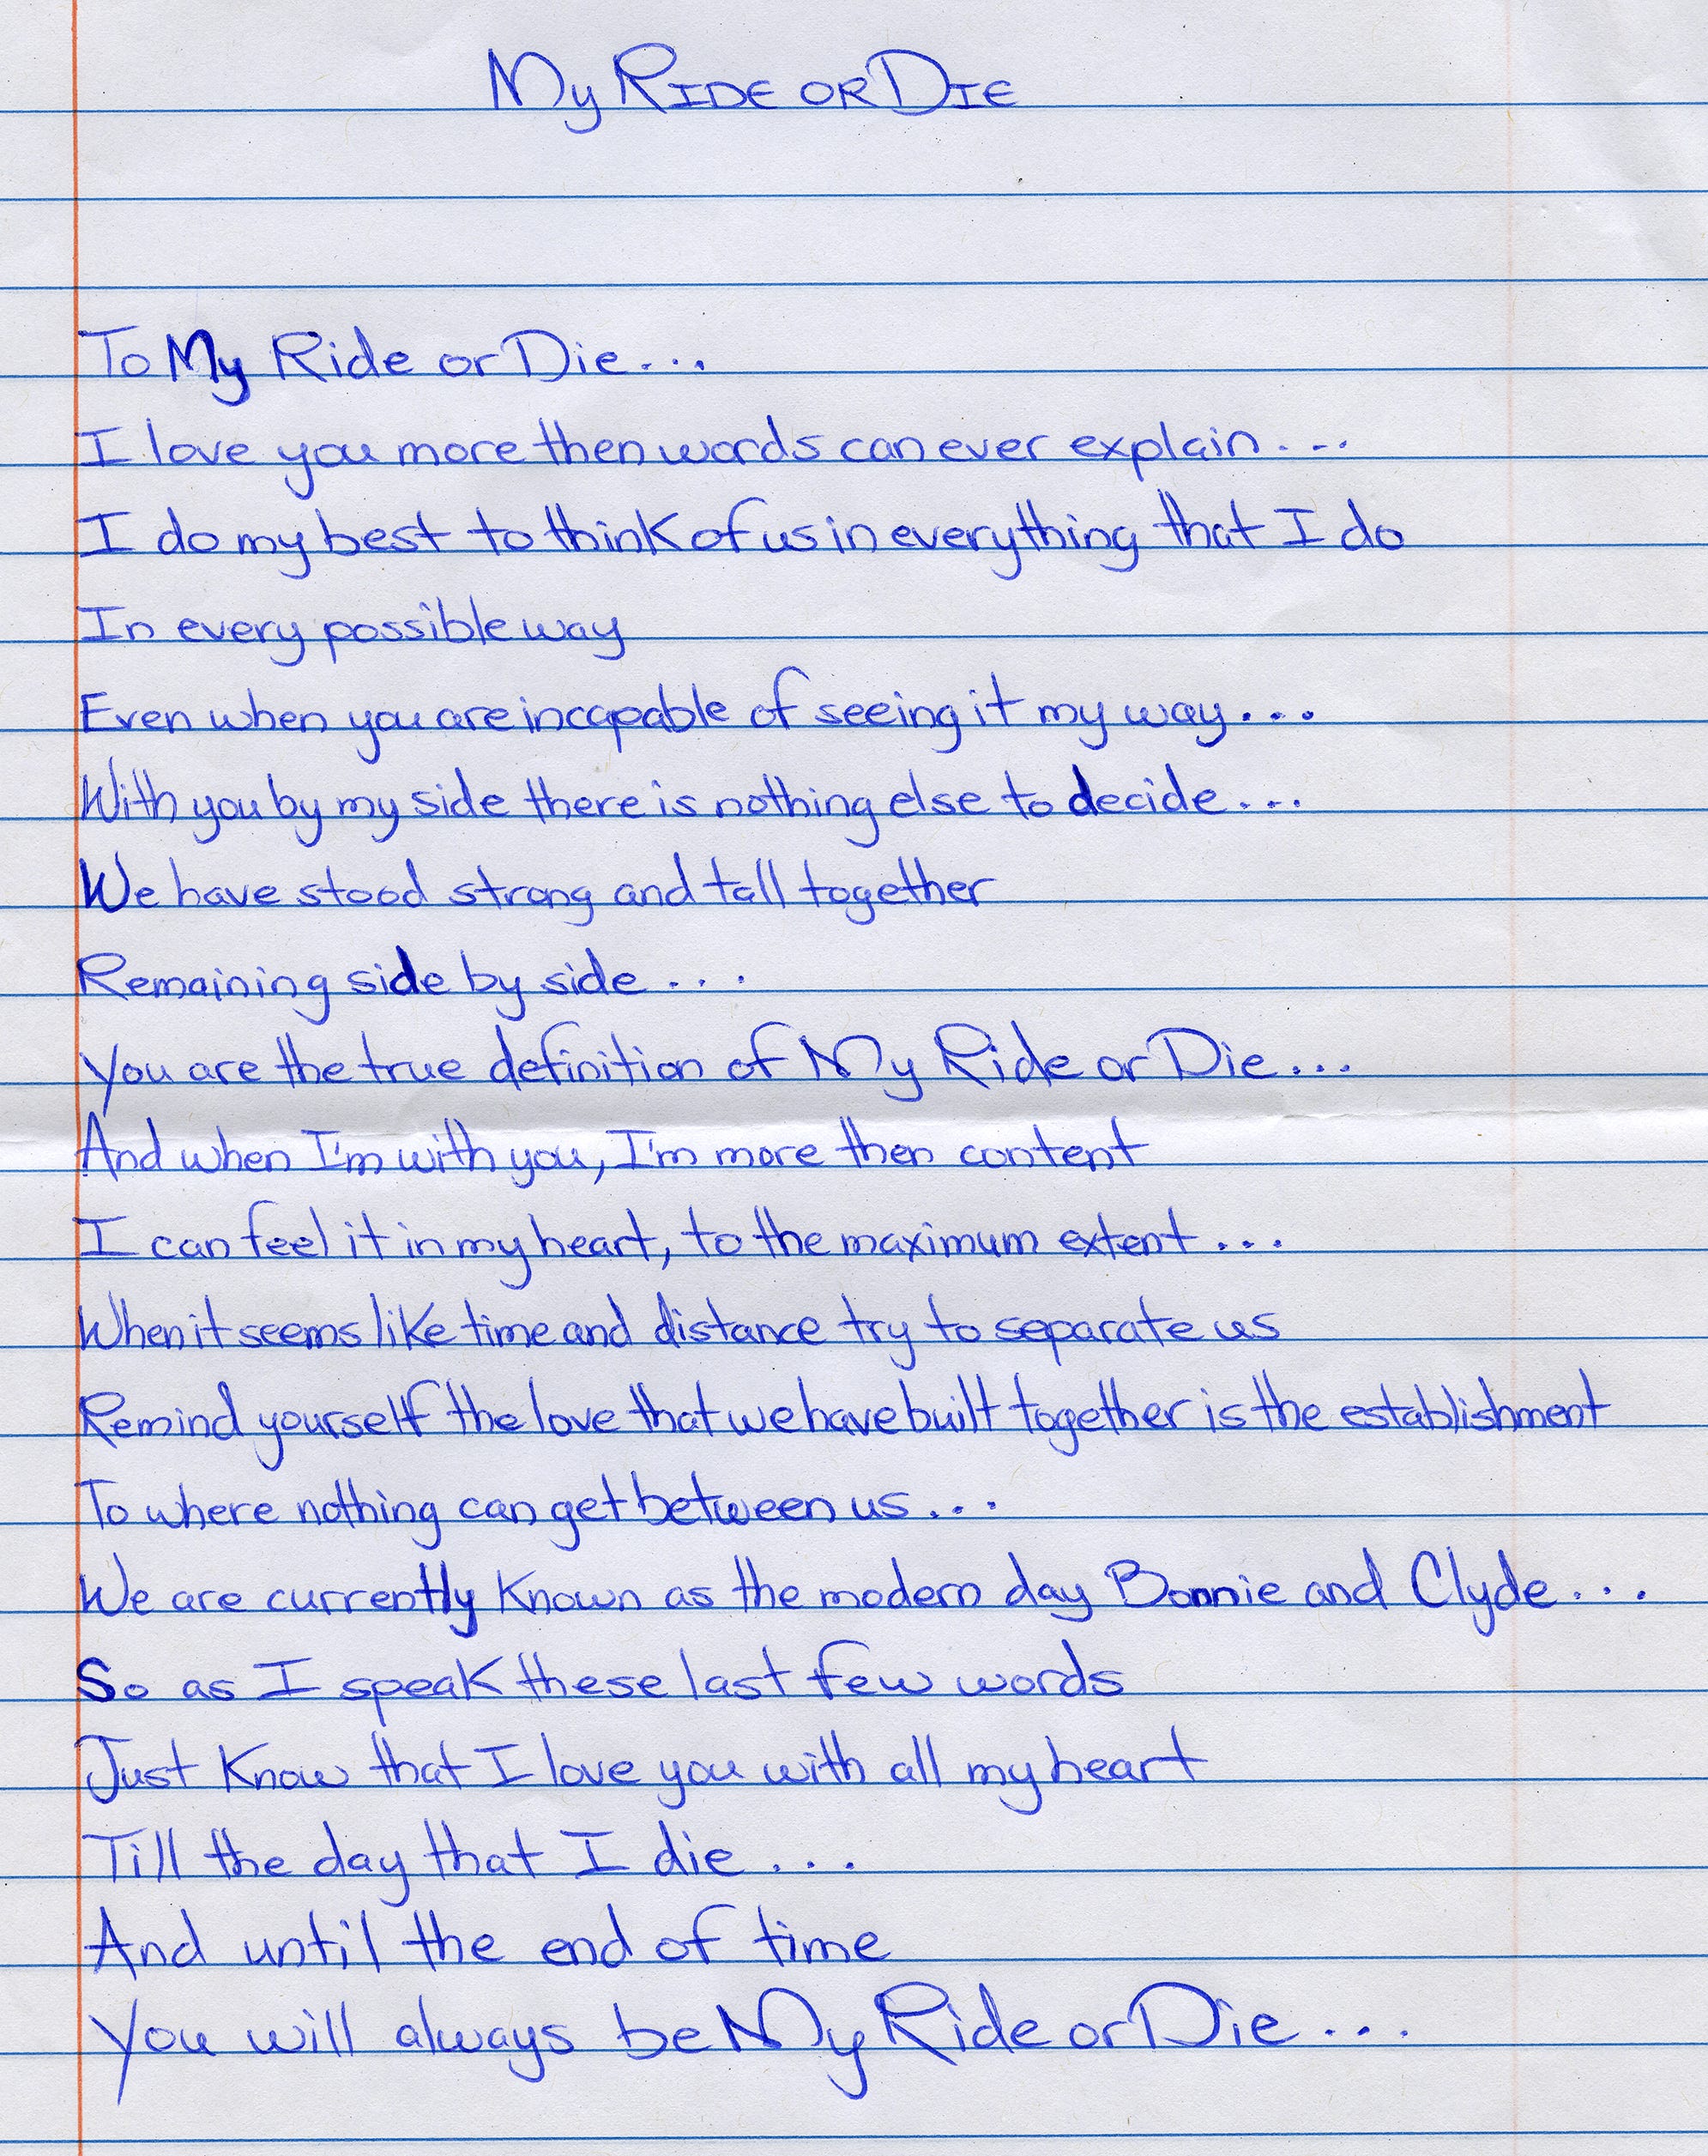 My RIDE OR DIE
To My Ride or Die...
I love you more then words can ever explain...
I do my best to think of us in everything that I do
In every possible way
Even when you are incapable of seeing it my way...
With you by my side there is nothing else to decide...
We have stood strong and tall together
Remaining side by side...
You are the true definition of My Ride or Die...
And when I'm with you, I'm more then content
I can feel it in my heart, to the maximum extent...
When it seems like time and distance try to separate us
Remind yourself the love that we have built together is the establishment
To where nothing can get between us...
We are currently Known as the modern day Bonnie and Clyde...
So as I speak these last few words
Just Know that I love you with all my heart
Till the day that I die...
And until the end of time
You will always be My Ride or Die...